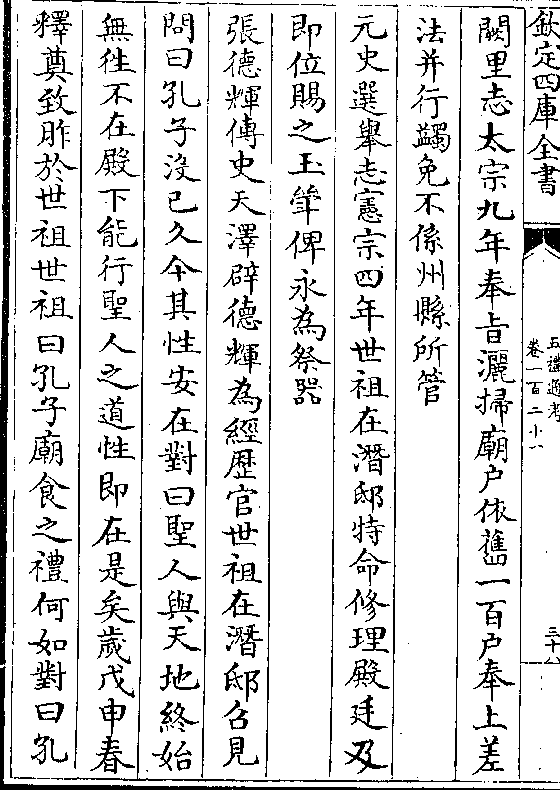 欽定四庫全書
五禮通考
卷一百二十一
三十八
闕里志太宗九年奉旨灑掃廟户依舊一百户奉上差
法并行蠲免不係州縣所管
元史選舉志憲宗四年世祖在潛邸特命修理殿廷及
即位賜之玉斝俾永為祭器
張德輝傳史天澤辟德輝為經歴官世祖在潛邸召見
問曰孔子没已久今其性安在對曰聖人與天地終始
無徃不在殿下能行聖人之道性即在是矣歲戊申春
釋奠致胙於世祖世祖曰孔子廟食之禮何如對曰孔